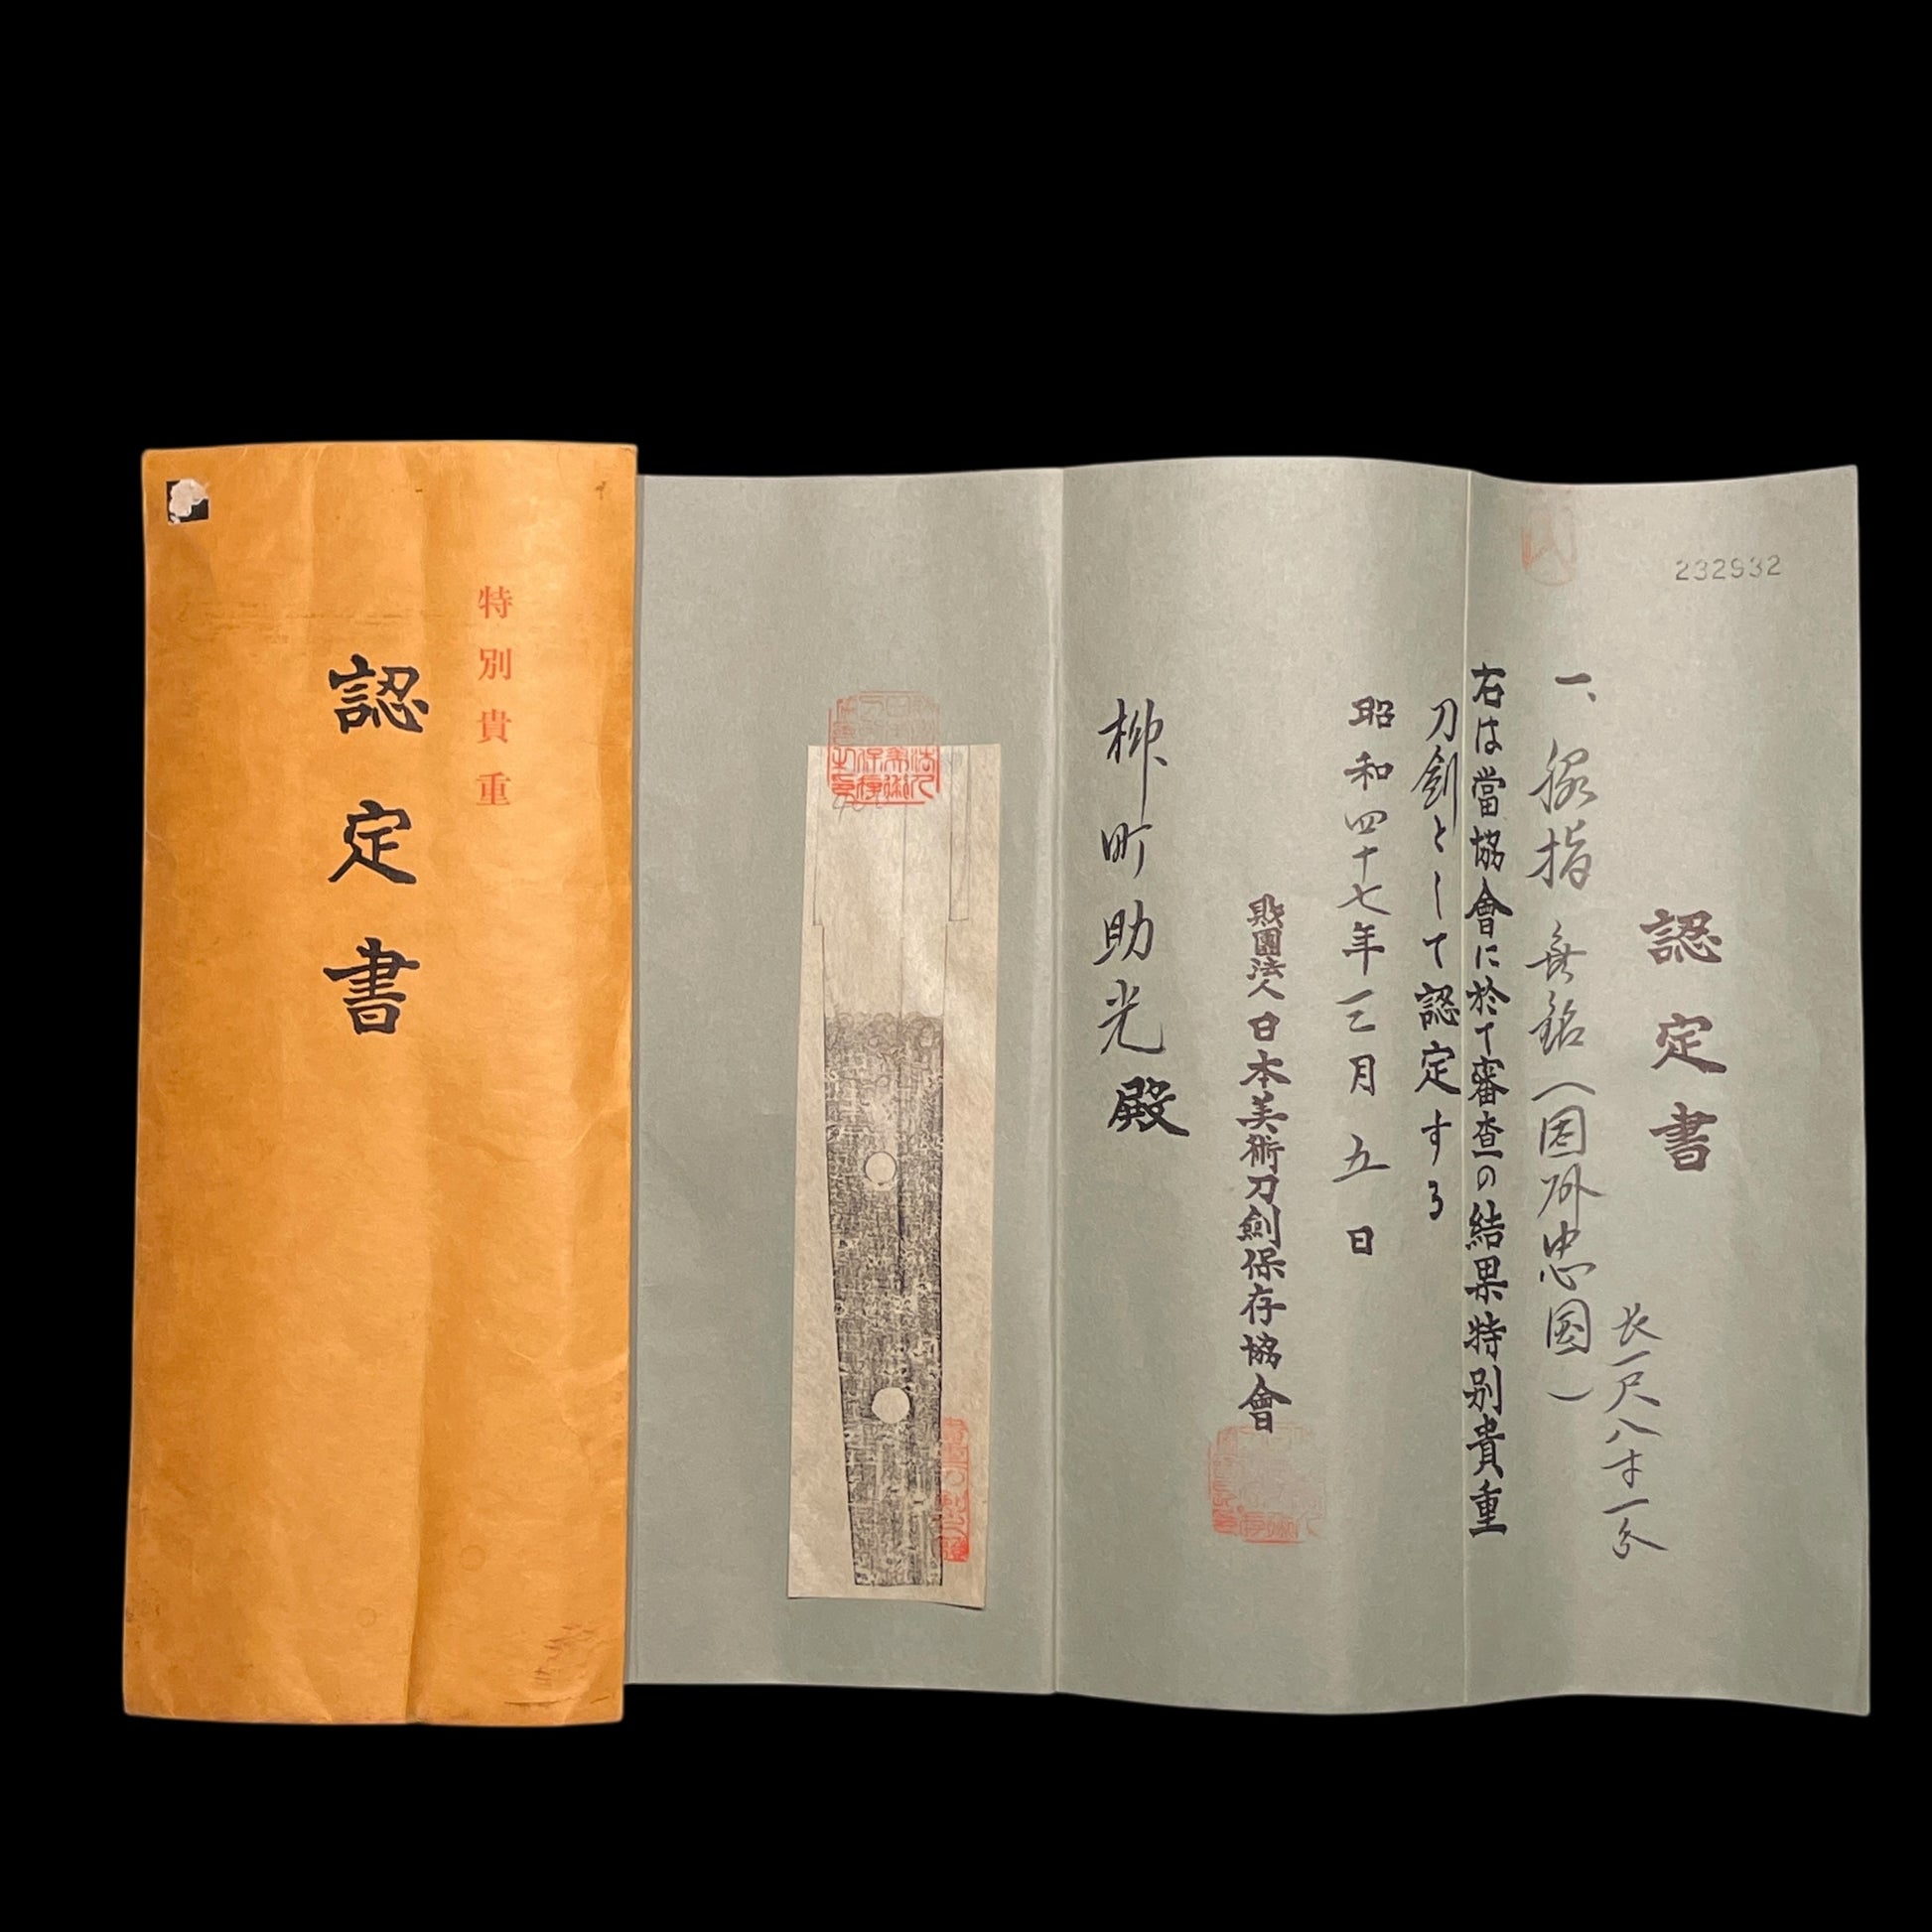 特別貴重
認定書
232932
認定書
長一尺八寸一分
一、脇指 無銘(因州忠国)
右は當協會に於て審査の結果特別貴重
刀剣として認定する
昭和四十七年三月五日
財團法人日本美術刀劍保存協會
柳町助光殿